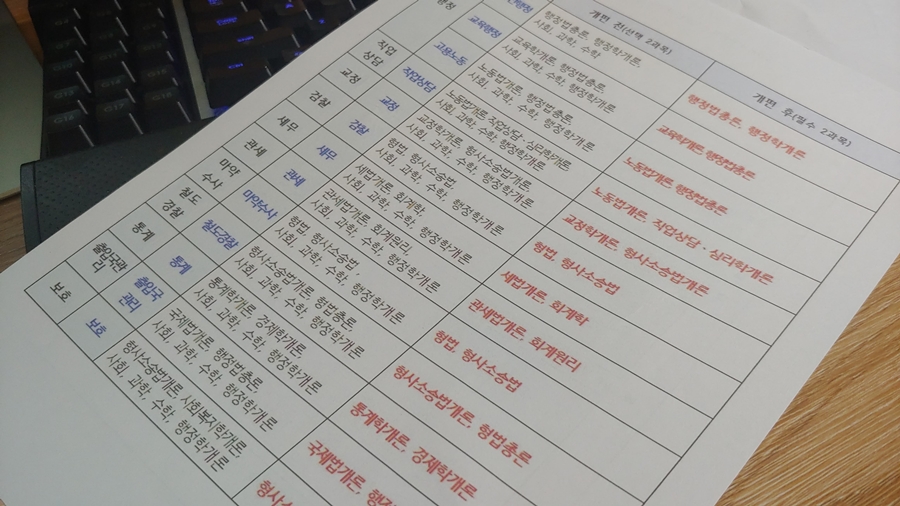 개편 전(선택 2과목)
개편 후(필수 2과목)
행정법총론, 행정학개론,
사회, 과학, 수학
행정법총론, 행정학개론
교육행정
교육학개론, 행정법총론,
사회, 과학, 수학, 행정학개론
교육학개론, 행정법총론
고용노동
노동법개론, 행정법총론,
사회, 과학, 수학, 행정학개론
노동법개론, 행정법총론
직업
상담
직업상담
노동법개론, 직업상담·심리학개론,
사회, 과학, 수학, 행정학개론
노동법개론, 직업상담·심리학개론
교정
교정
교정학개론, 형사소송법개론,
사회, 과학, 수학, 행정학개론
교정학개론, 형사소송법개론
검찰
검찰
형법, 형사소송법,
사회, 과학, 수학, 행정학개론
형법, 형사소송법
세무
세무
세법개론, 회계학,
사회, 과학, 수학, 행정학개론
세법개론, 회계학
관세
관세
관세법개론, 회계원리,
사회, 과학, 수학, 행정학개론
관세법개론, 회계원리
마약
수사
마약수사
형법, 형사소송법,
사회, 과학, 수학, 행정학개론
형법, 형사소송법
철도
경찰
철도경찰
형사소송법개론, 형법총론,
사회, 과학, 수학, 행정학개론
형사소송법개론, 형법총론
통계
통계
통계학개론, 경제학개론,
사회, 과학, 수학, 행정학개론
통계학개론, 경제학개론
출입국관
리
출입국
관리
국제법개론, 행정법총론,
사회, 과학, 수학, 행정학개론
국제법개론, 행정
보호
보호
형사소송법개론, 사회복지학개론,
사회, 과학, 수학, 행정학개론
형사소
G16
G17